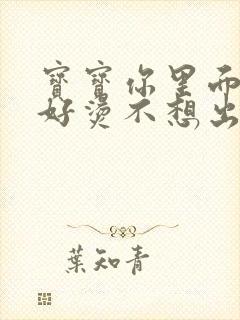 寶寶你里面
好燙不想出
葉知青